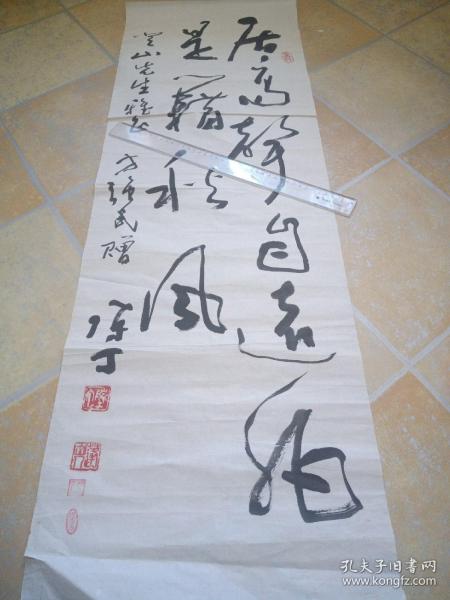 居高声自远非
是藉秋风
山先生雅正
方强民赠
孔夫子旧书网
www.kongfz.com